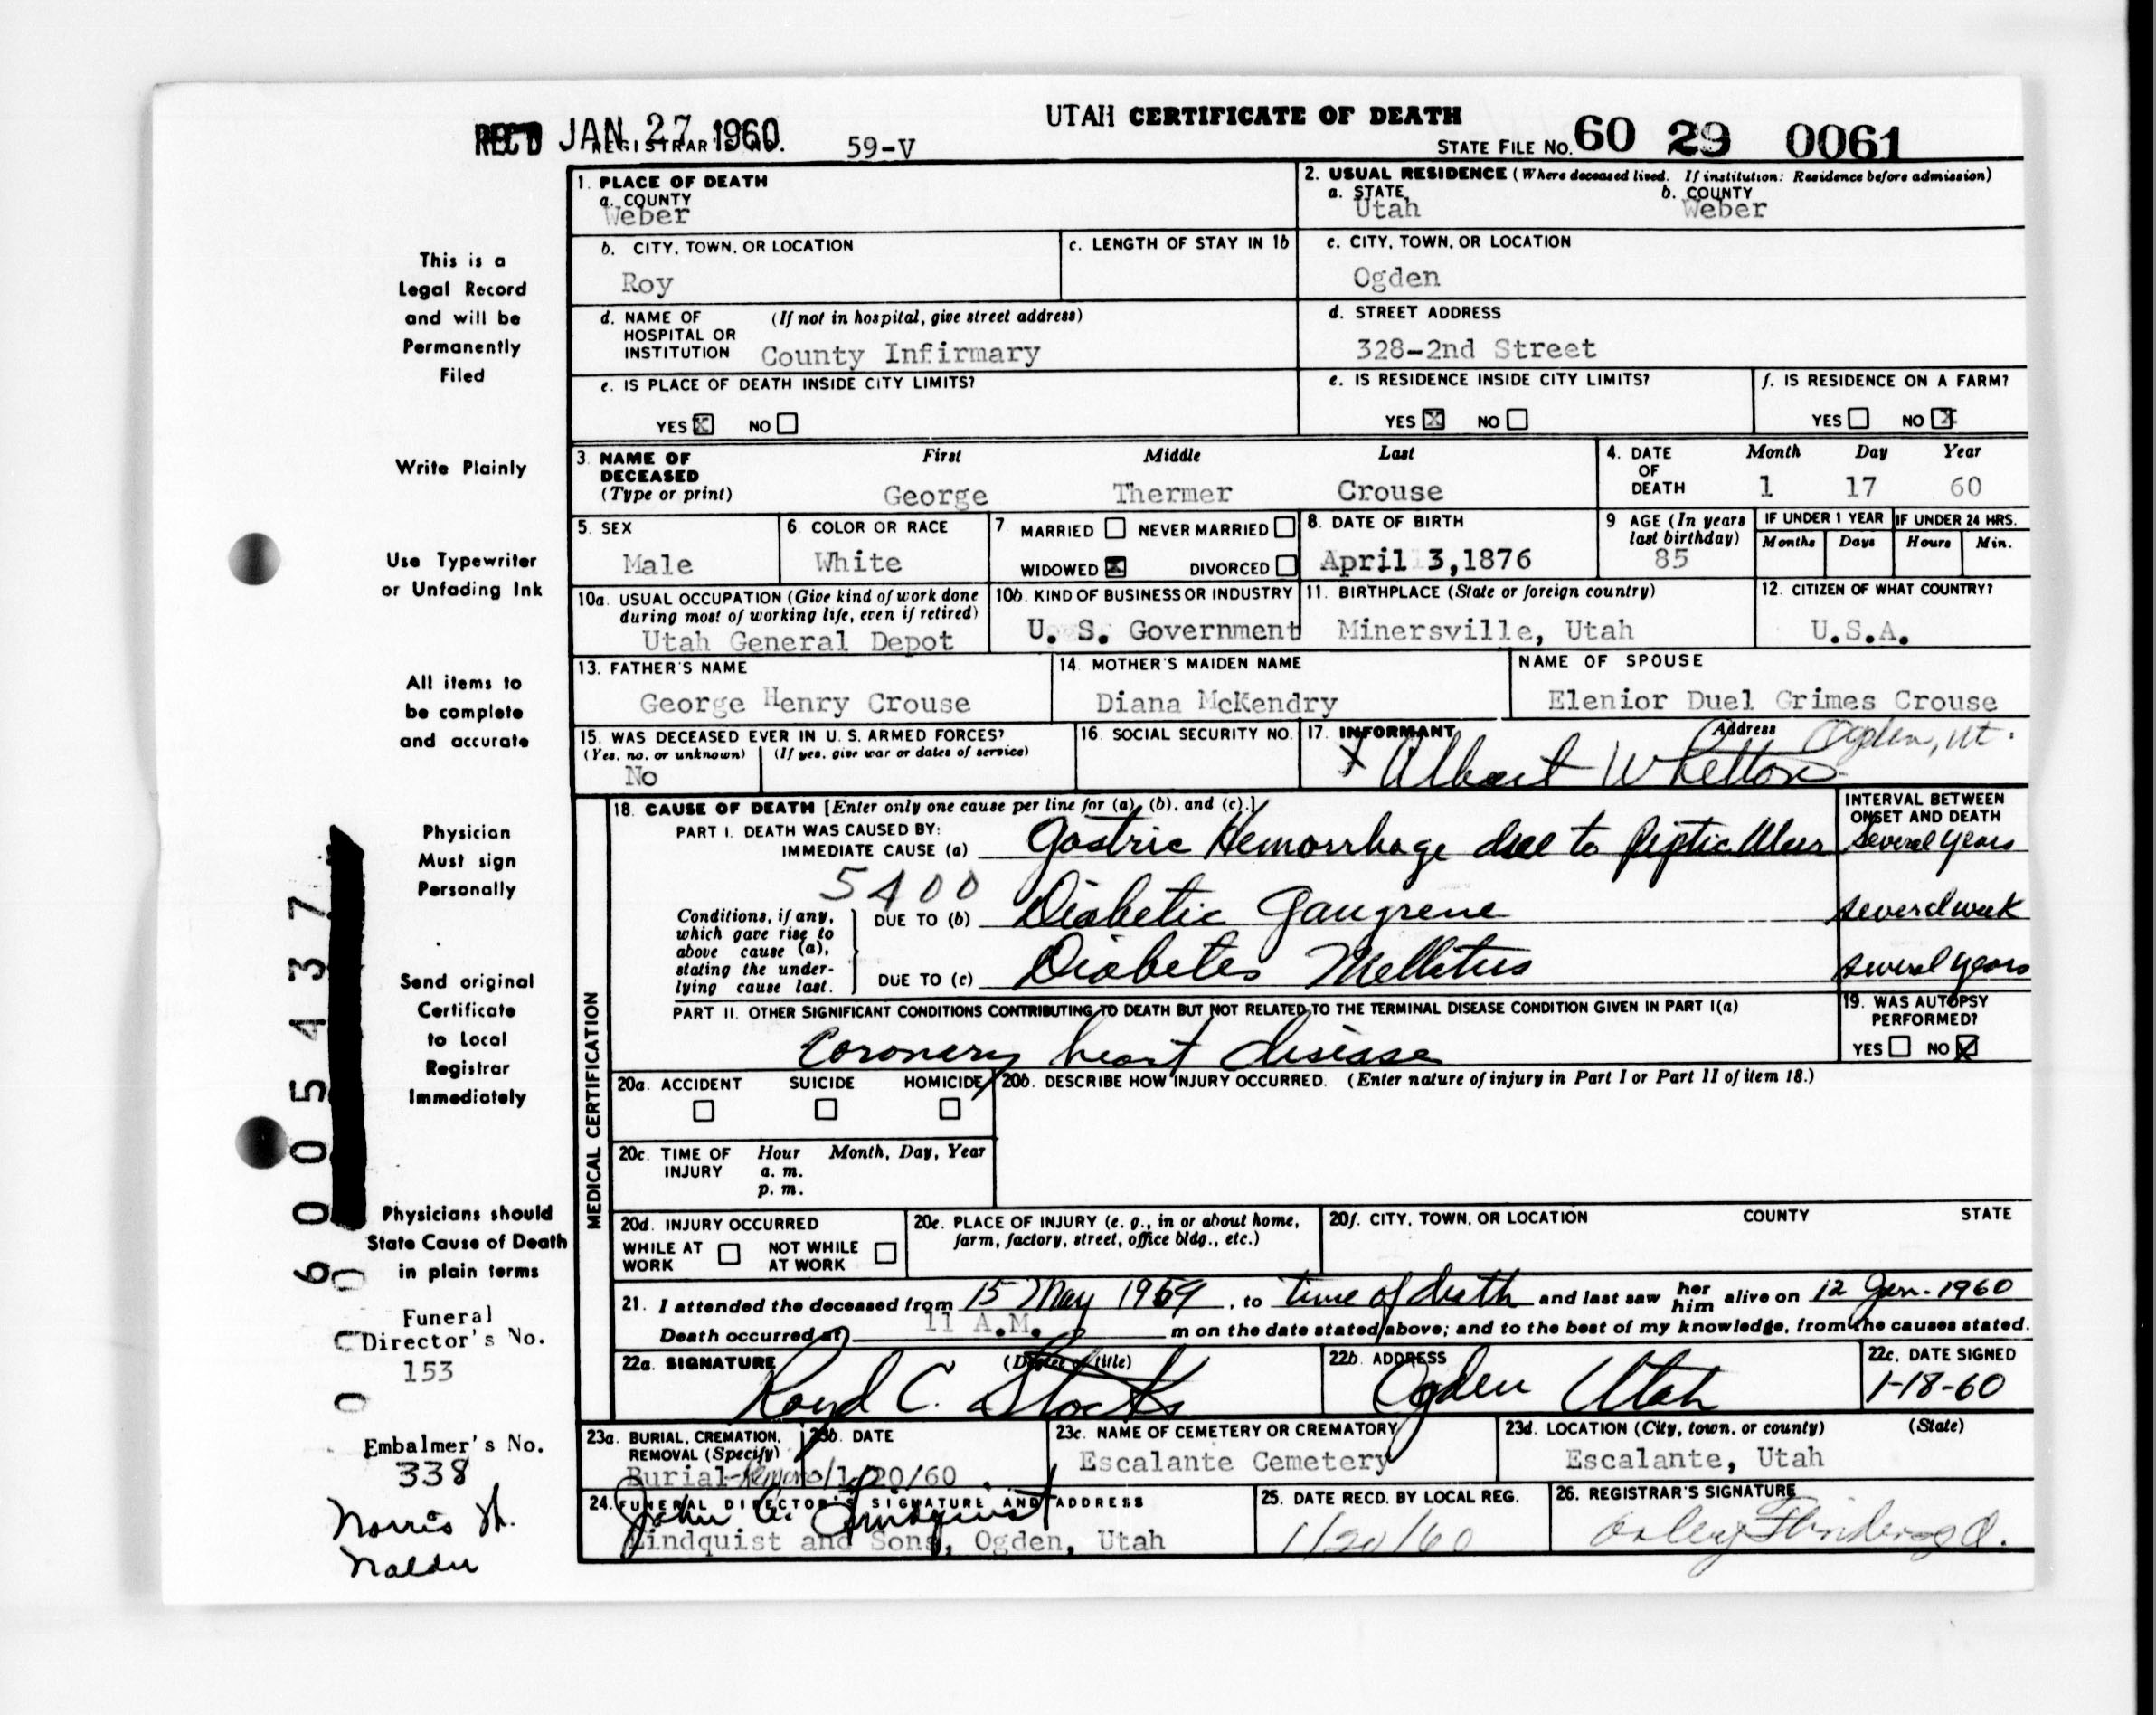 UTAH CERTIFICATE OF DEATH
REC'D JAN 27 1960 59-V STATE FILE No. 60 29 0061
1. PLACE OF DEATH
a. COUNTY
Weber
2. USUAL RESIDENCE (Where deceased lived. If institution: Residence before admission)
a. STATE b. COUNTY
Utah Weber
b. CITY, TOWN, OR LOCATION
Roy
c. LENGTH OF STAY IN 1b
c. CITY, TOWN, OR LOCATION
Ogden
d. NAME OF (If not in hospital, give street address)
HOSPITAL OR
INSTITUTION County Infirmary
d. STREET ADDRESS
328-2nd Street
e. IS PLACE OF DEATH INSIDE CITY LIMITS?
YES X NO
e. IS RESIDENCE INSIDE CITY LIMITS?
YES X NO
f. IS RESIDENCE ON A FARM?
YES NO X
3. NAME OF First Middle Last
DECEASED
(Type or print) George Thermer Crouse
4. DATE Month Day Year
OF
DEATH 1 17 60
5. SEX
Male
6. COLOR OR RACE
White
7 MARRIED NEVER MARRIED
WIDOWED X DIVORCED
8. DATE OF BIRTH
April 3,1876
9 AGE (In years
last birthday)
85
IF UNDER 1 YEAR IF UNDER 24 HRS.
Months Days Hours Min.
10a. USUAL OCCUPATION (Give kind of work done
during most of working life, even if retired)
Utah General Depot
10b. KIND OF BUSINESS OR INDUSTRY
U. S. Government
11. BIRTHPLACE (State or foreign country)
Minersville, Utah
12. CITIZEN OF WHAT COUNTRY?
U.S.A.
13. FATHER'S NAME
George Henry Crouse
14. MOTHER'S MAIDEN NAME
Diana McKendry
NAME OF SPOUSE
Elenior Duel Grimes Crouse
15. WAS DECEASED EVER IN U. S. ARMED FORCES?
(Yes, no, or unknown) (If yes, give war or dates of service)
No
16. SOCIAL SECURITY NO.
17. INFORMANT Address Ogden, Ut.
X Albert Whetton
18. CAUSE OF DEATH [Enter only one cause per line for (a), (b), and (c).]
PART I. DEATH WAS CAUSED BY:
IMMEDIATE CAUSE (a) Gastric Hemorrhage due to peptic Ulcer
INTERVAL BETWEEN
ONSET AND DEATH
several years
5400
Conditions, if any,
which gave rise to
above cause (a),
stating the under-
lying cause last.
DUE TO (b) Diabetic Gangrene several week
DUE TO (c) Diabetes Mellitus several years
PART II. OTHER SIGNIFICANT CONDITIONS CONTRIBUTING TO DEATH BUT NOT RELATED TO THE TERMINAL DISEASE CONDITION GIVEN IN PART I(a)
Coronary heart disease
19. WAS AUTOPSY
PERFORMED?
YES NO X
MEDICAL CERTIFICATION
20a. ACCIDENT SUICIDE HOMICIDE
20b. DESCRIBE HOW INJURY OCCURRED. (Enter nature of injury in Part I or Part II of item 18.)
20c. TIME OF Hour Month, Day, Year
INJURY a. m.
p. m.
20d. INJURY OCCURRED
WHILE AT NOT WHILE
WORK AT WORK
20e. PLACE OF INJURY (e. g., in or about home,
farm, factory, street, office bldg., etc.)
20f. CITY, TOWN, OR LOCATION COUNTY STATE
21. I attended the deceased from 15 May 1959, to time of death and last saw her him alive on 12 Jan. 1960
Death occurred at 11 A.M. m on the date stated above; and to the best of my knowledge, from the causes stated.
22a. SIGNATURE (Degree or title)
Loyd C. Stocks
22b. ADDRESS
Ogden Utah
22c. DATE SIGNED
1-18-60
23a. BURIAL, CREMATION,
REMOVAL (Specify)
Burial-Removal
23b. DATE
1/20/60
23c. NAME OF CEMETERY OR CREMATORY
Escalante Cemetery
23d. LOCATION (City, town, or county) (State)
Escalante, Utah
24. FUNERAL DIRECTOR'S SIGNATURE AND ADDRESS
John A. Lindquist
Lindquist and Sons, Ogden, Utah
25. DATE RECD. BY LOCAL REG.
1/20/60
26. REGISTRAR'S SIGNATURE
This is a
Legal Record
and will be
Permanently
Filed
Write Plainly
Use Typewriter
or Unfading Ink
All items to
be complete
and accurate
Physician
Must sign
Personally
Send original
Certificate
to Local
Registrar
Immediately
Physicians should
State Cause of Death
in plain terms
Funeral
Director's No.
153
Embalmer's No.
338
Norris H.
Nalder
6005437